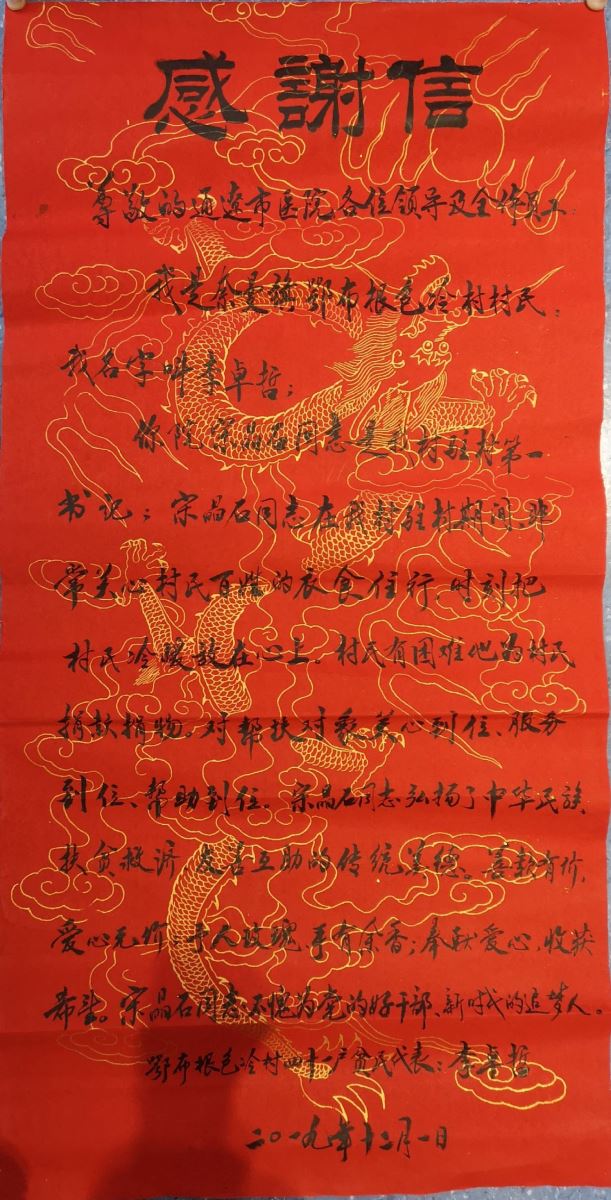 感謝信
尊敬的通遼市医院各位领导及全体员工:
我是奈曼旗鄂布根色冷村村民,
我名字叫李卓哲;
你院宗晶石同志是我村驻村第一
书记;宗晶石同志在我村驻村期间,非
常关心村民百姓的衣食住行,时刻把
村民冷暖放在心上。村民有困难他为村民
捐款捐物。对帮扶对象关心到位、服务
到位、帮助到位。宗晶石同志弘扬了中华民族
扶贫救济 友善互助的传统美德。善款有价,
爱心无价;予人玫瑰,手有余香;奉献爱心,收获
希望。宗晶石同志不愧为党的好干部、新时代的追梦人。
鄂布根色冷村四十户贫民代表:李卓哲
二〇一九年十二月一日